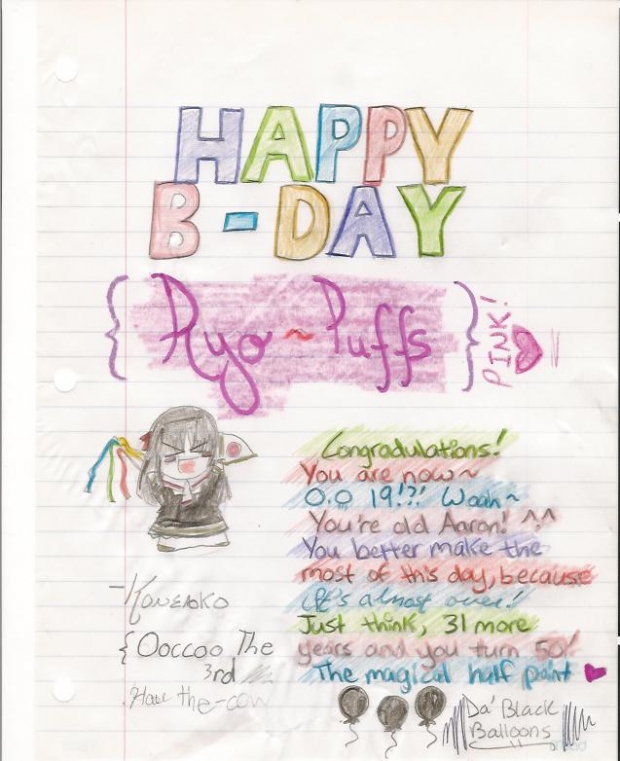 HAPPY
B-DAY
{ Ryo~Puffs }
PINK!
Congradulations!
You are now~
O.O 19!?! Woah~
You're old Aaron! ^.^
You better make the
most of this day, because
It's almost over!!
Just think, 31 more
years and you turn 50!
The magical half point
-Koneioko
{Ooccoo The
3rd
the-cow
Da' Black
Balloons